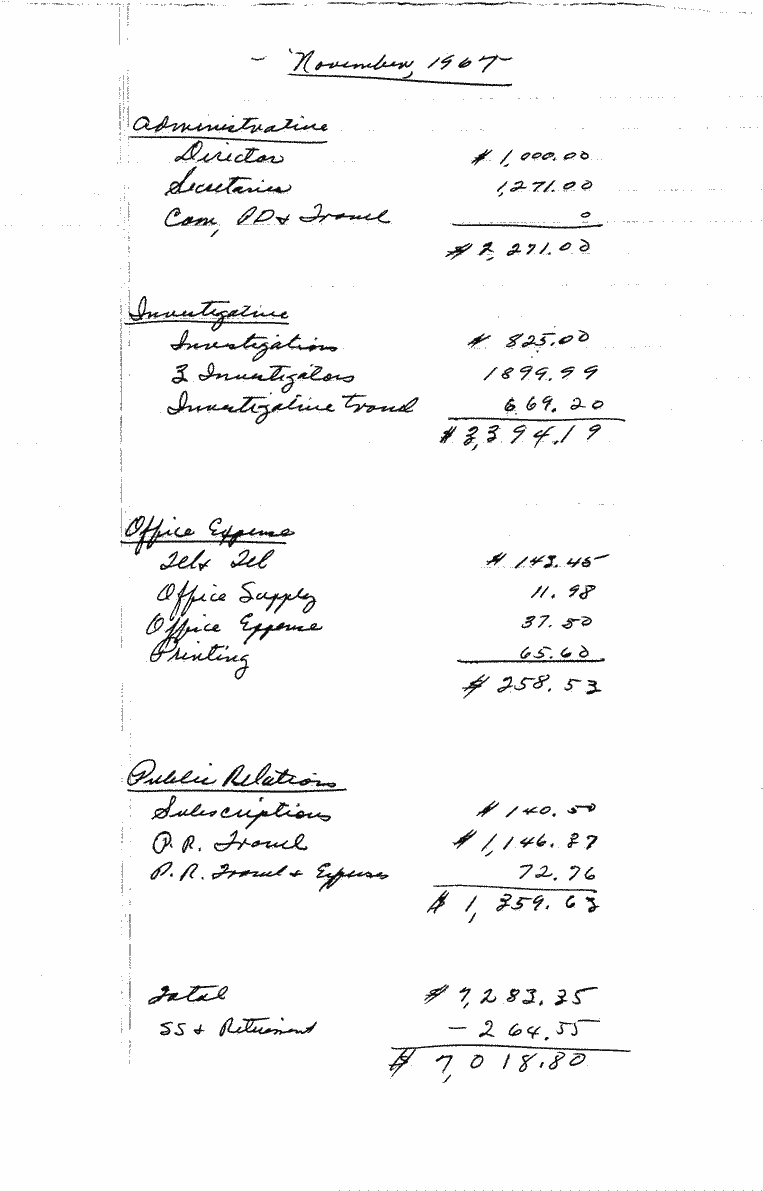 - November, 1967
Administrative
Director $ 1,000.00
Secretaries 1,271.00
Com, PD & Travel 0
$ 2,271.00
Investigative
Investigations $ 825.00
3 Investigators 1899.99
Investigative travel 669.20
$ 3,394.19
Office Expense
Tel & Tel $ 143.45
Office Supply 11.98
Office Expense 37.50
Printing 65.60
$ 258.53
Public Relations
Subscriptions $ 140.50
P.R. Travel $ 1,146.37
P.R. Travel & Expenses 72.76
$ 1,359.63
Total $ 7,283.35
SS & Retirement - 264.55
$ 7,018.80